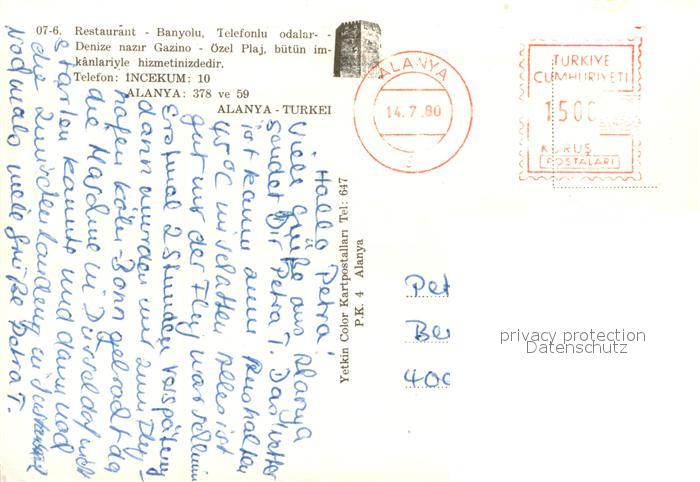 07-6. Restaurant - Banyolu, Telefonlu odalar- -
Denize nazır Gazino - Özel Plaj, bütün im-
kânlariyle hizmetinizdedir.
Telefon: İNCEKUM: 10
ALANYA: 378 ve 59
ALANYA - TURKEI
ALANYA
14.7.80
TÜRKİYE
CUMHURİYETİ
1500
KURUŞ
POSTALARI
Yetkin Color Kartpostalları Tel: 647
P.K. 4 Alanya
Hallo Petra!
Viele Grüße aus Alanya
sendet Dir Petra T. Das Wetter
ist kaum zum Aushalten
45°C im Schatten. Alles ist
gut nur der Flug war schlimm
Erstmal 2 Stunden Verspätung
dann wurden wir zum Flug-
hafen Köln-Bonn gebracht da
die Maschine in Düsseldorf nicht
starten konnte und dann noch
die Zwischenlandung in Istanbul
Nochmals viele Grüße Petra T.
Pet
Be
400
privacy protection
Datenschutz